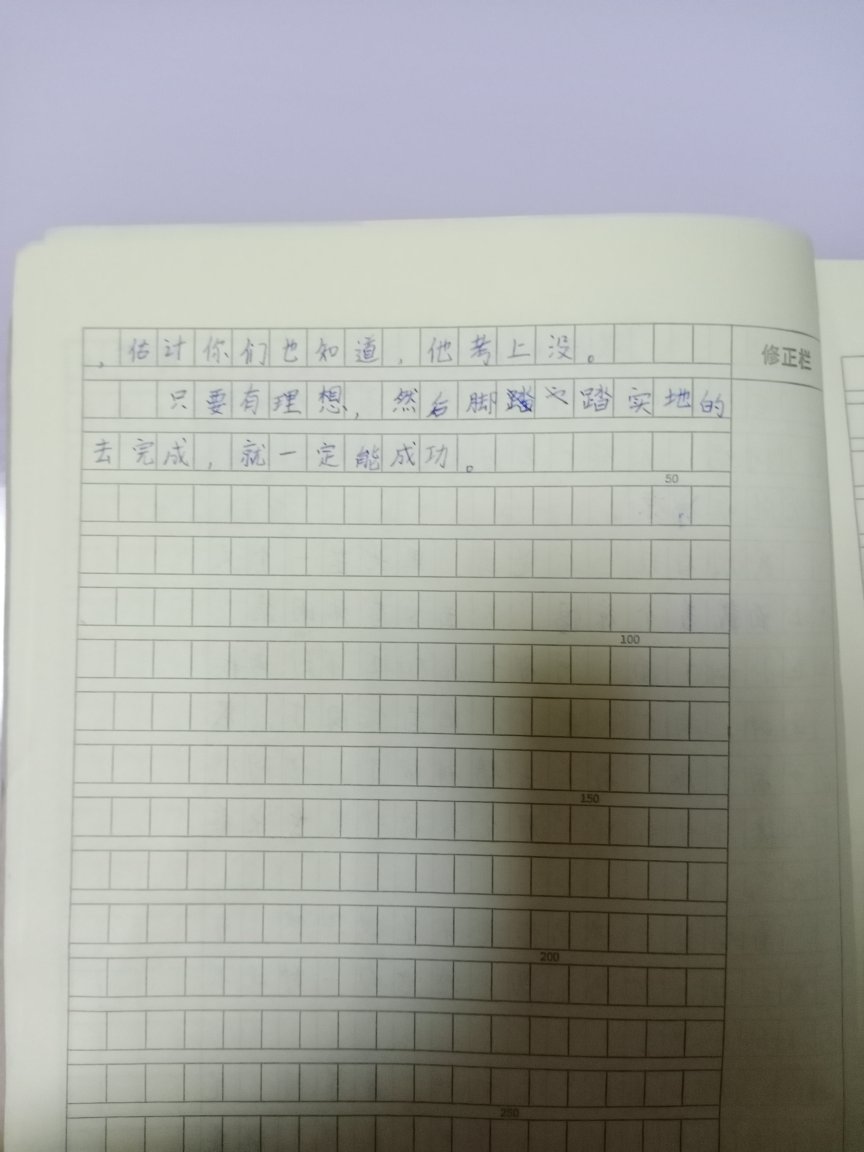 ，估计你们也知道，他考上没。
修正栏
只要有理想，然后脚踏实地的
去完成，就一定能成功。
50
100
150
200
250